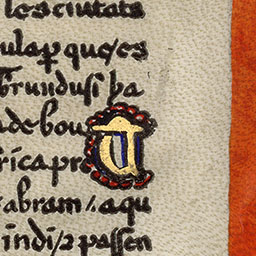 les ciutats
ula ꝑ que/es
brundusi ha
ade bou
rica pre
abram /. aqu
indi /2 passen